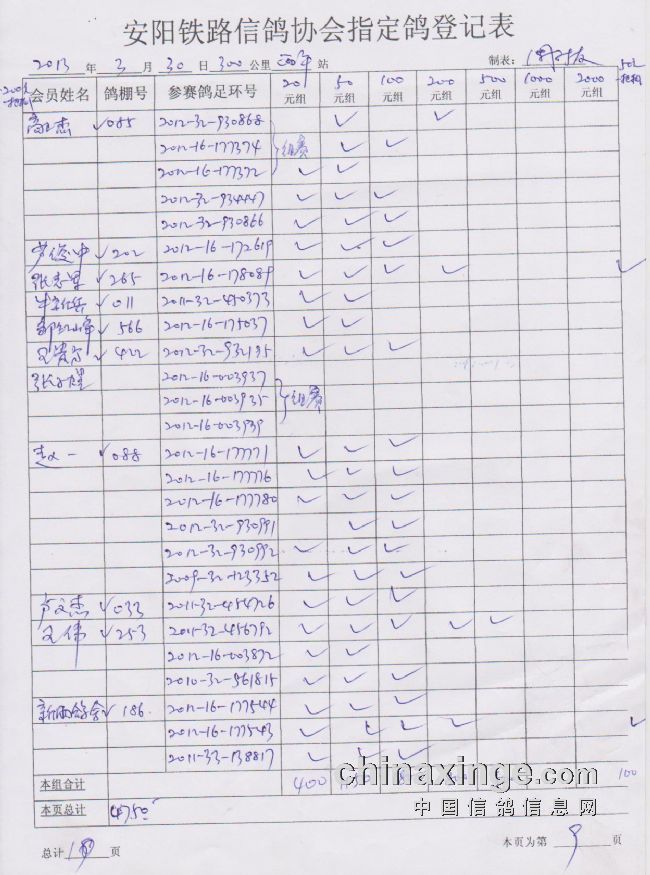 安阳铁路信鸽协会指定鸽登记表
2013 年 3 月 30 日 300 公里 站 制表：
会员姓名 鸽棚号 参赛鸽足环号 20元组 50元组 100元组 200元组 500元组 1000元组 2000元组
✓085 2012-32-930868 ✓ ✓
2012-16-177374 组赛 ✓ ✓
2012-16-177372 ✓ ✓
2012-32-934447 ✓ ✓ ✓
2012-32-930866 ✓ ✓ ✓
✓202 2012-16-172619 ✓ ✓ ✓
✓265 2012-16-178089 ✓ ✓ ✓ ✓ ✓
✓011 2011-32-450373 ✓ ✓
✓566 2012-16-175037 ✓ ✓
✓422 2012-32-932195 ✓ ✓ ✓
2012-16-003937
2012-16-003935 组赛
2012-16-003939
赵一 ✓088 2012-16-177771 ✓ ✓ ✓
2012-16-177776 ✓ ✓ ✓
2012-16-177780 ✓ ✓ ✓
2012-32-930991 ✓ ✓
2012-32-930992 ✓ ✓ ✓
2009-32-123352 ✓ ✓ ✓
卢文杰 ✓033 2011-32-454726 ✓ ✓ ✓
王伟 ✓253 2011-32-456792 ✓ ✓ ✓ ✓ ✓
2012-16-003872 ✓ ✓ ✓
2010-32-561815 ✓ ✓ ✓
✓186 2012-16-177544 ✓ ✓ ✓
2012-16-177543 ✓ ✓ ✓ ✓ ✓
2011-33-138817 ✓ ✓ ✓
本组合计 400 100
本页总计 4750
chinaxinge.com
中国信鸽信息网
总计 页 本页为第 9 页